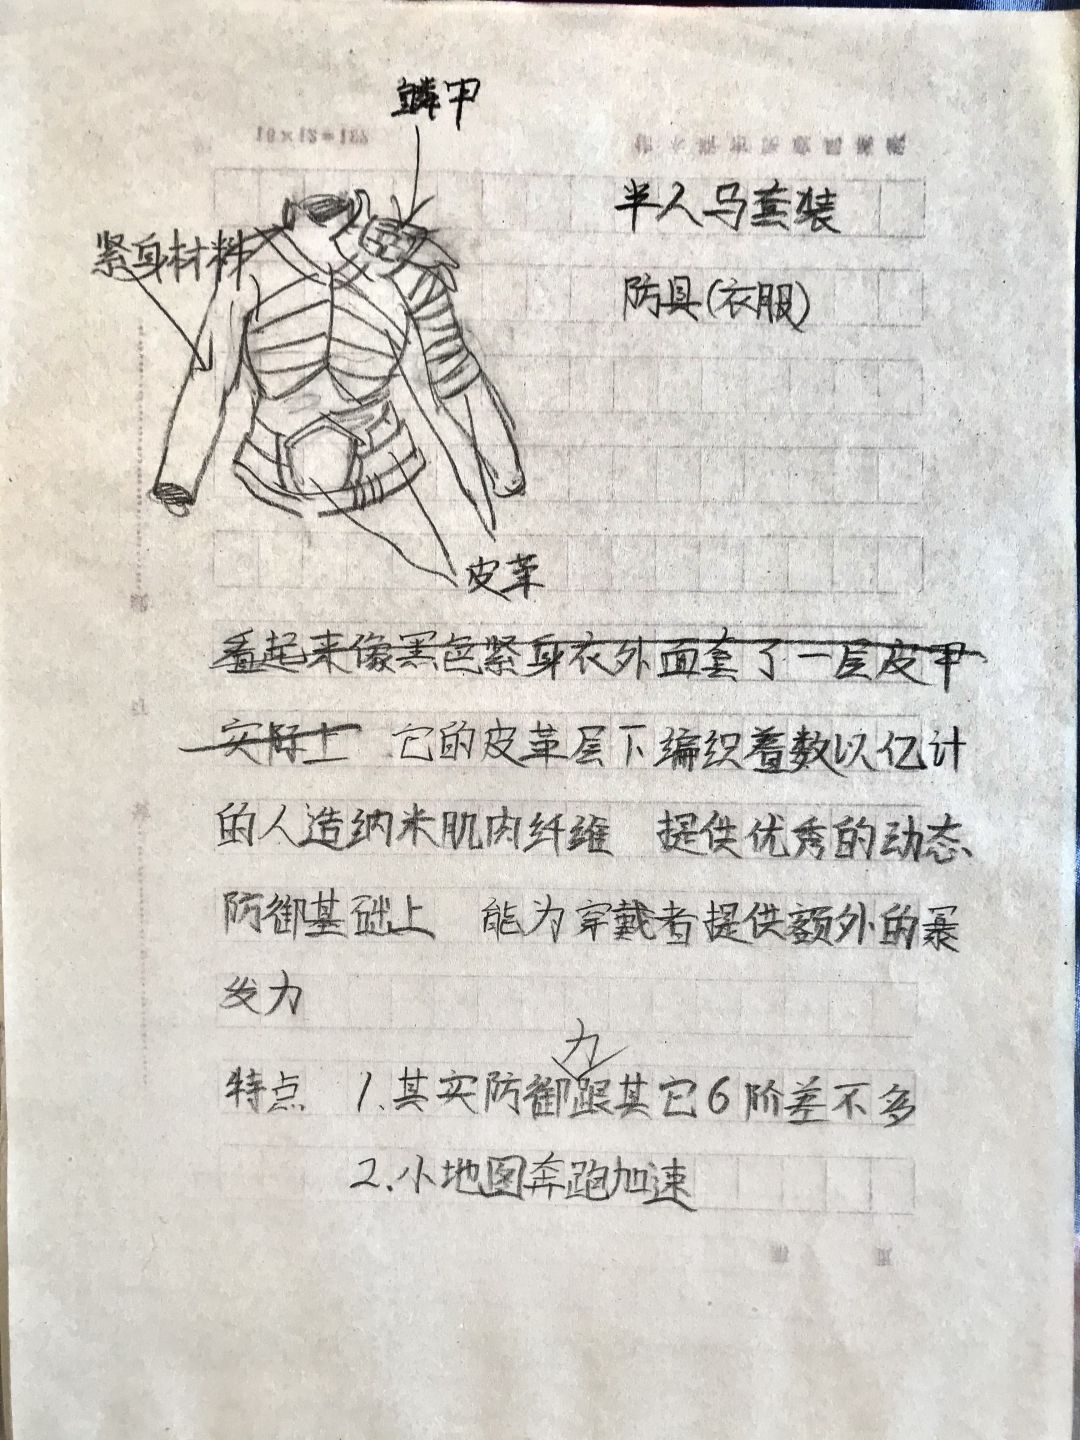 鳞甲
半人马套装
紧身材料
防具(衣服)
皮革
看起来像黑色紧身衣外面套了一层皮甲
实际上 它的皮革层下编织着数以亿计
的人造纳米肌肉纤维 提供优秀的动态
防御基础上 能为穿戴者提供额外的暴
发力
力
特点 1.其实防御跟其它6阶差不多
2.小地图奔跑加速